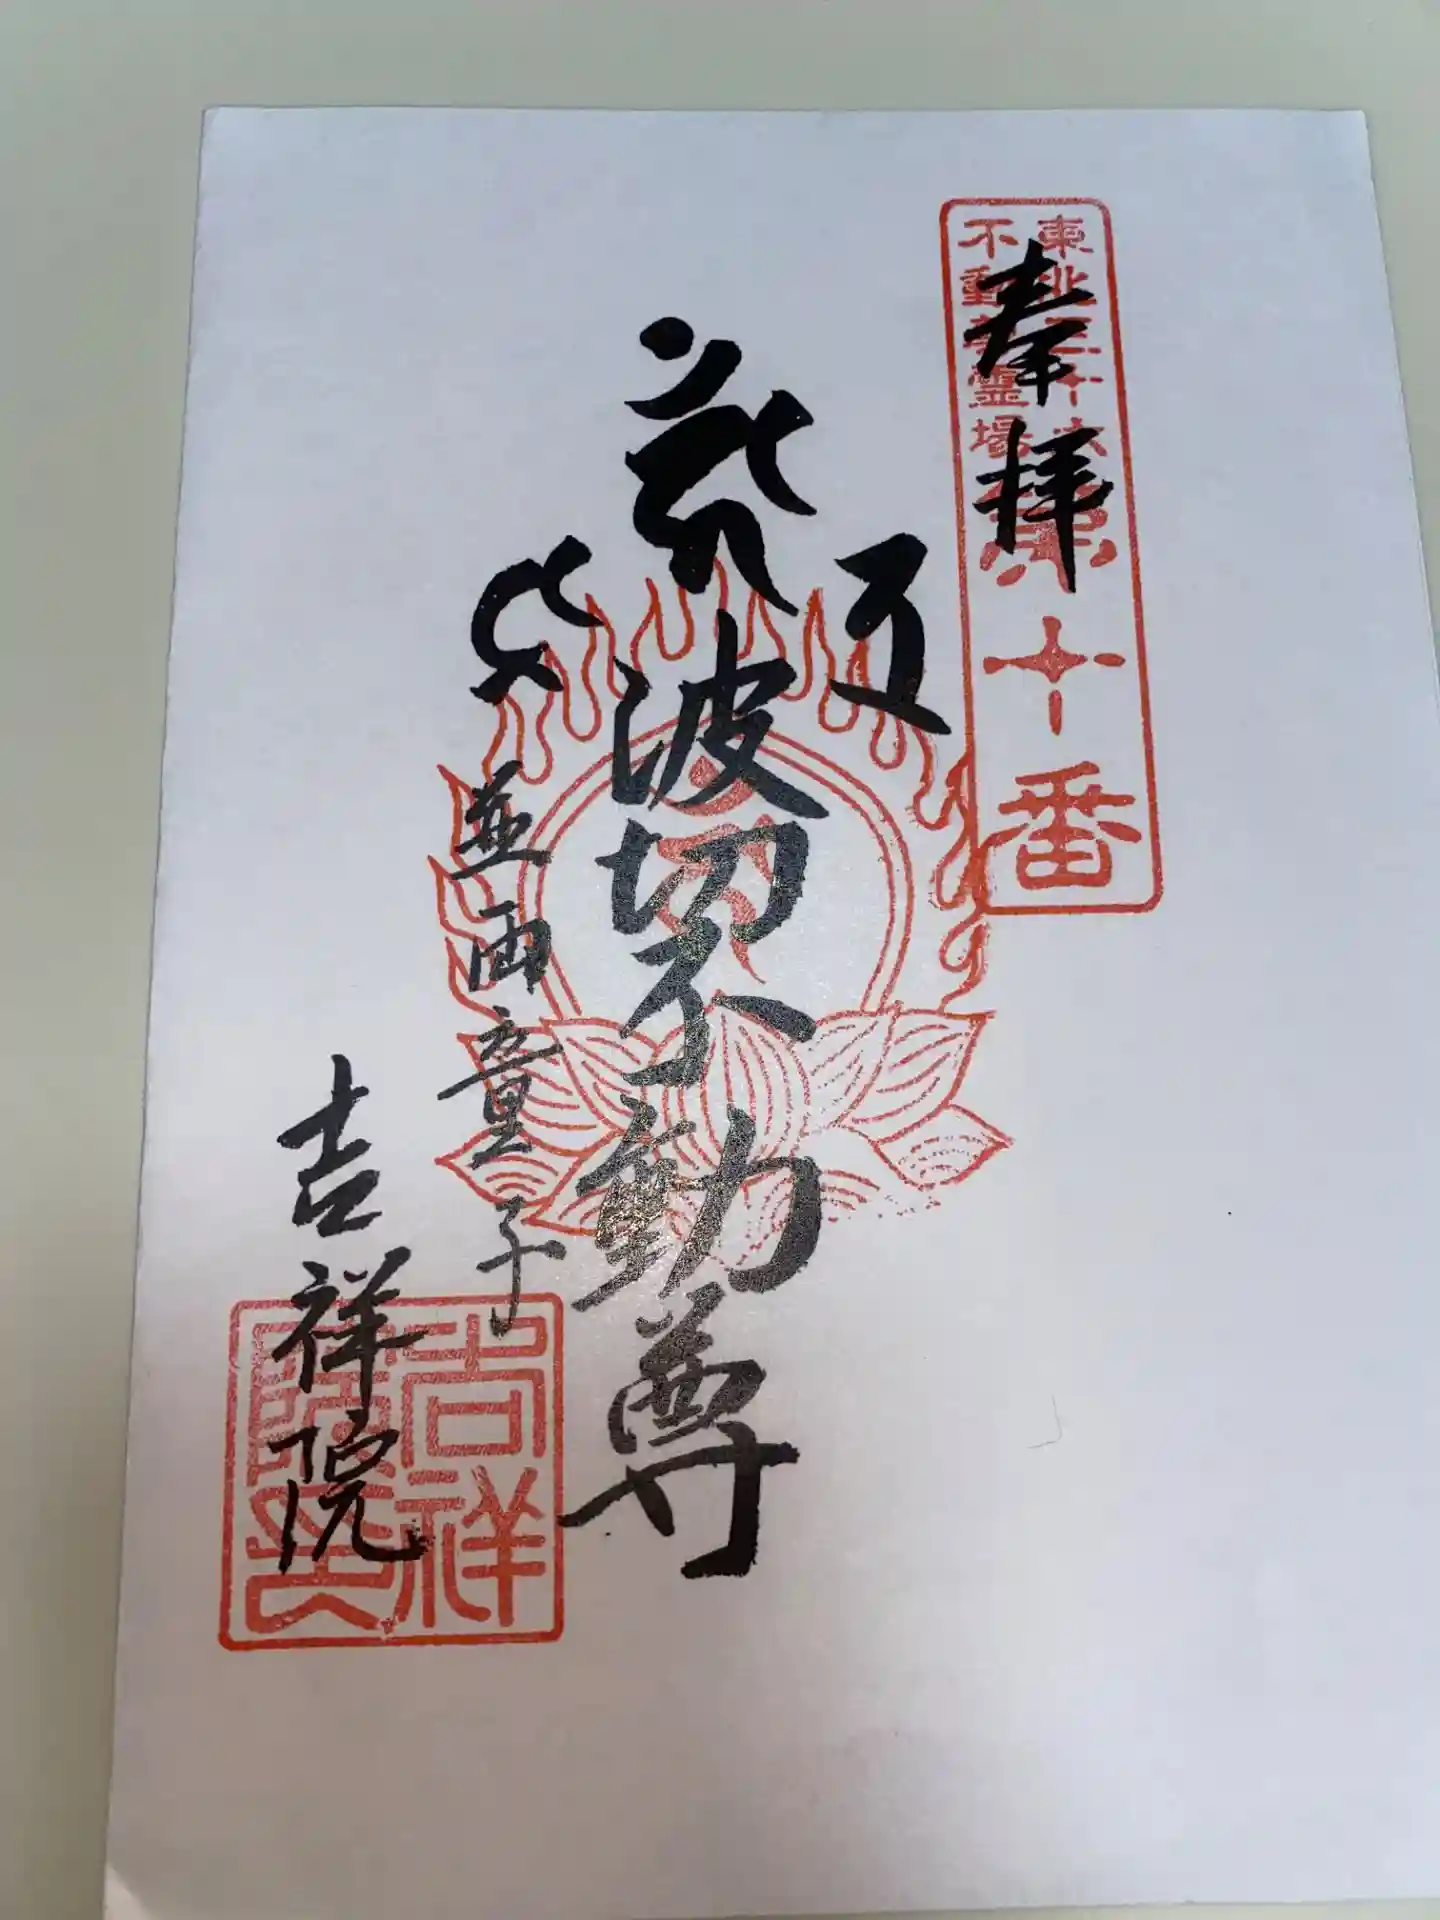 奉拝
東北三十六
不動尊霊場
第十番
波切不動尊
並両童子
吉祥院
吉祥
院印